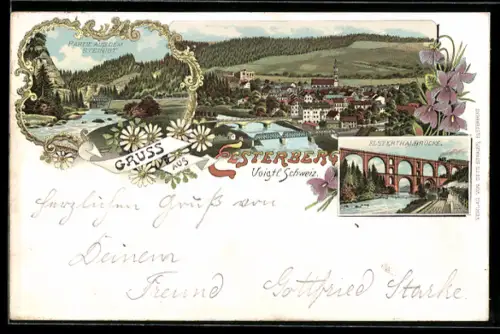 PARTIE AUS DEM
STEINICHT
GRUSS
AUS
ELSTERBERG
Voigtl. Schweiz.
ELSTERTHALBRÜCKE.
herzlichen Gruß von
Deinem
Freund Gottfried Starke.